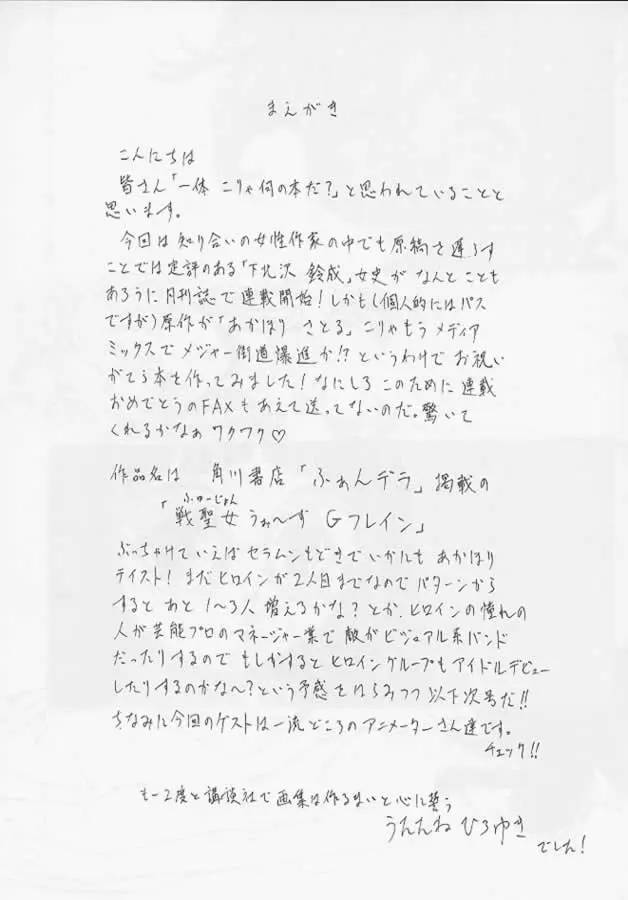 まえがき
こんにちは
皆さん「一体 こりゃ何の本だ?」と思われていることと
思います。
今回は知り合いの女性作家の中でも原稿を遅らす
ことでは定評のある「下北沢 鈴成」女史が なんと こともあ
ろうに 月刊誌で連載開始!しかも(個人的にはパス
ですが)原作が「あかほり さとる」こりゃもう メディア
ミックスで メジャー街道爆進か!?というわけで お祝い
がてら本を作ってみました!なにしろ このために 連載
おめでとうのFAXもあえて送ってないのだ。驚いて
くれるかなぁ ワクワク♡
作品名は 角川書店「ふぁんデラ」掲載の
ふゅーじょん
「戦聖女 うぉ〜ず Gフレイン」
ぶっちゃけていえばセラムンもどきでいかにも あかほり
テイスト! まだヒロインが2人目までなのでパターンから
すると あと 1〜3人 増えるかな? とか、ヒロインの憧れの
人が芸能プロのマネージャー業で 敵がビジュアル系バンド
だったりするので もしかすると ヒロイングループもアイドルデビュー
したりするのかな〜?という予感をはらみつつ 以下次号だ!!
ちなみに今回のゲストは一流どころのアニメーターさん達です。
チェック!!
も一2度と講談社で画集は作るまいと心に誓う
うたたね ひろゆき
でした!